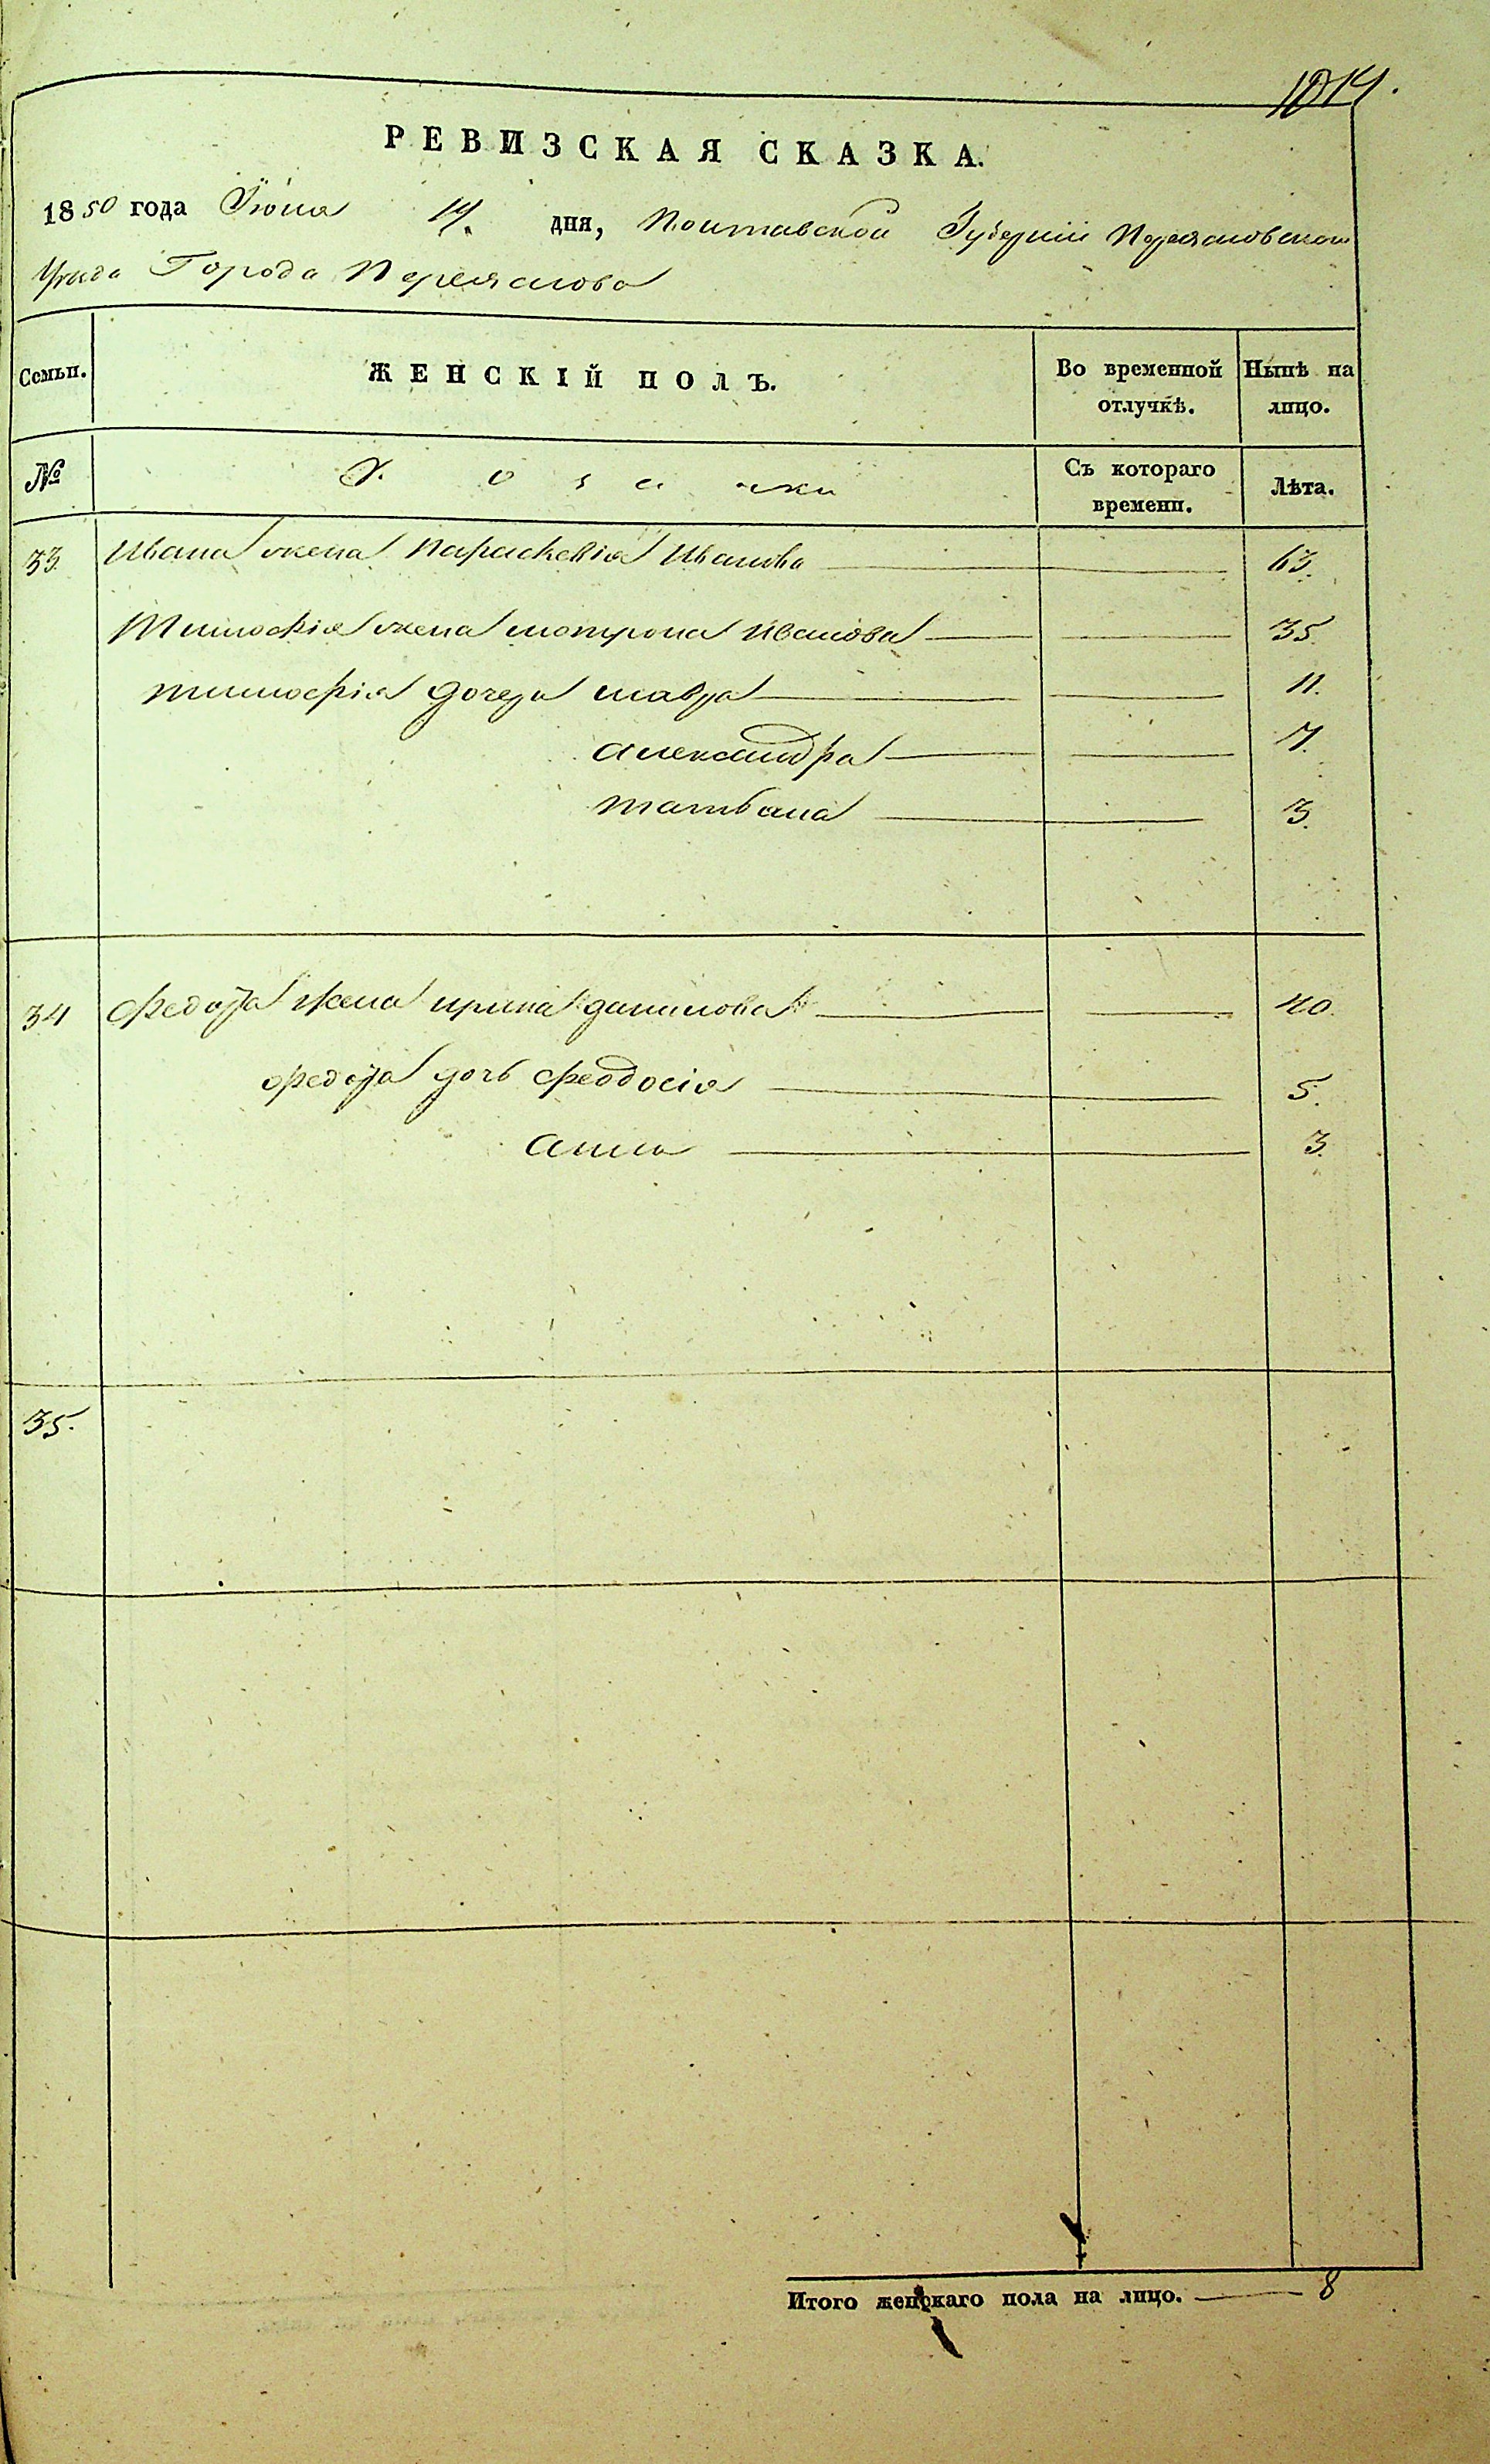 1014.
РЕВИЗСКАЯ СКАЗКА.
1850 года Іюня 14. дня, Полтавской Губерніи Переяславского
Уезда Города Переяслова
Семьи. ЖЕНСКІЙ ПОЛЪ. Во временной отлучкѣ. Нынѣ на лицо.
№ Козачки Съ котораго времени. Лѣта.
33. Ивана жена Параскевія Иванова 63.
Тимофія жена мотрона Иванова 35.
тимофія дочери мавра 11.
александра 7.
татьяна 3.
34 Федора жена ирина данилова 40.
федора дочь феодосія 5.
анна 3.
35.
Итого женскаго пола на лицо. 8